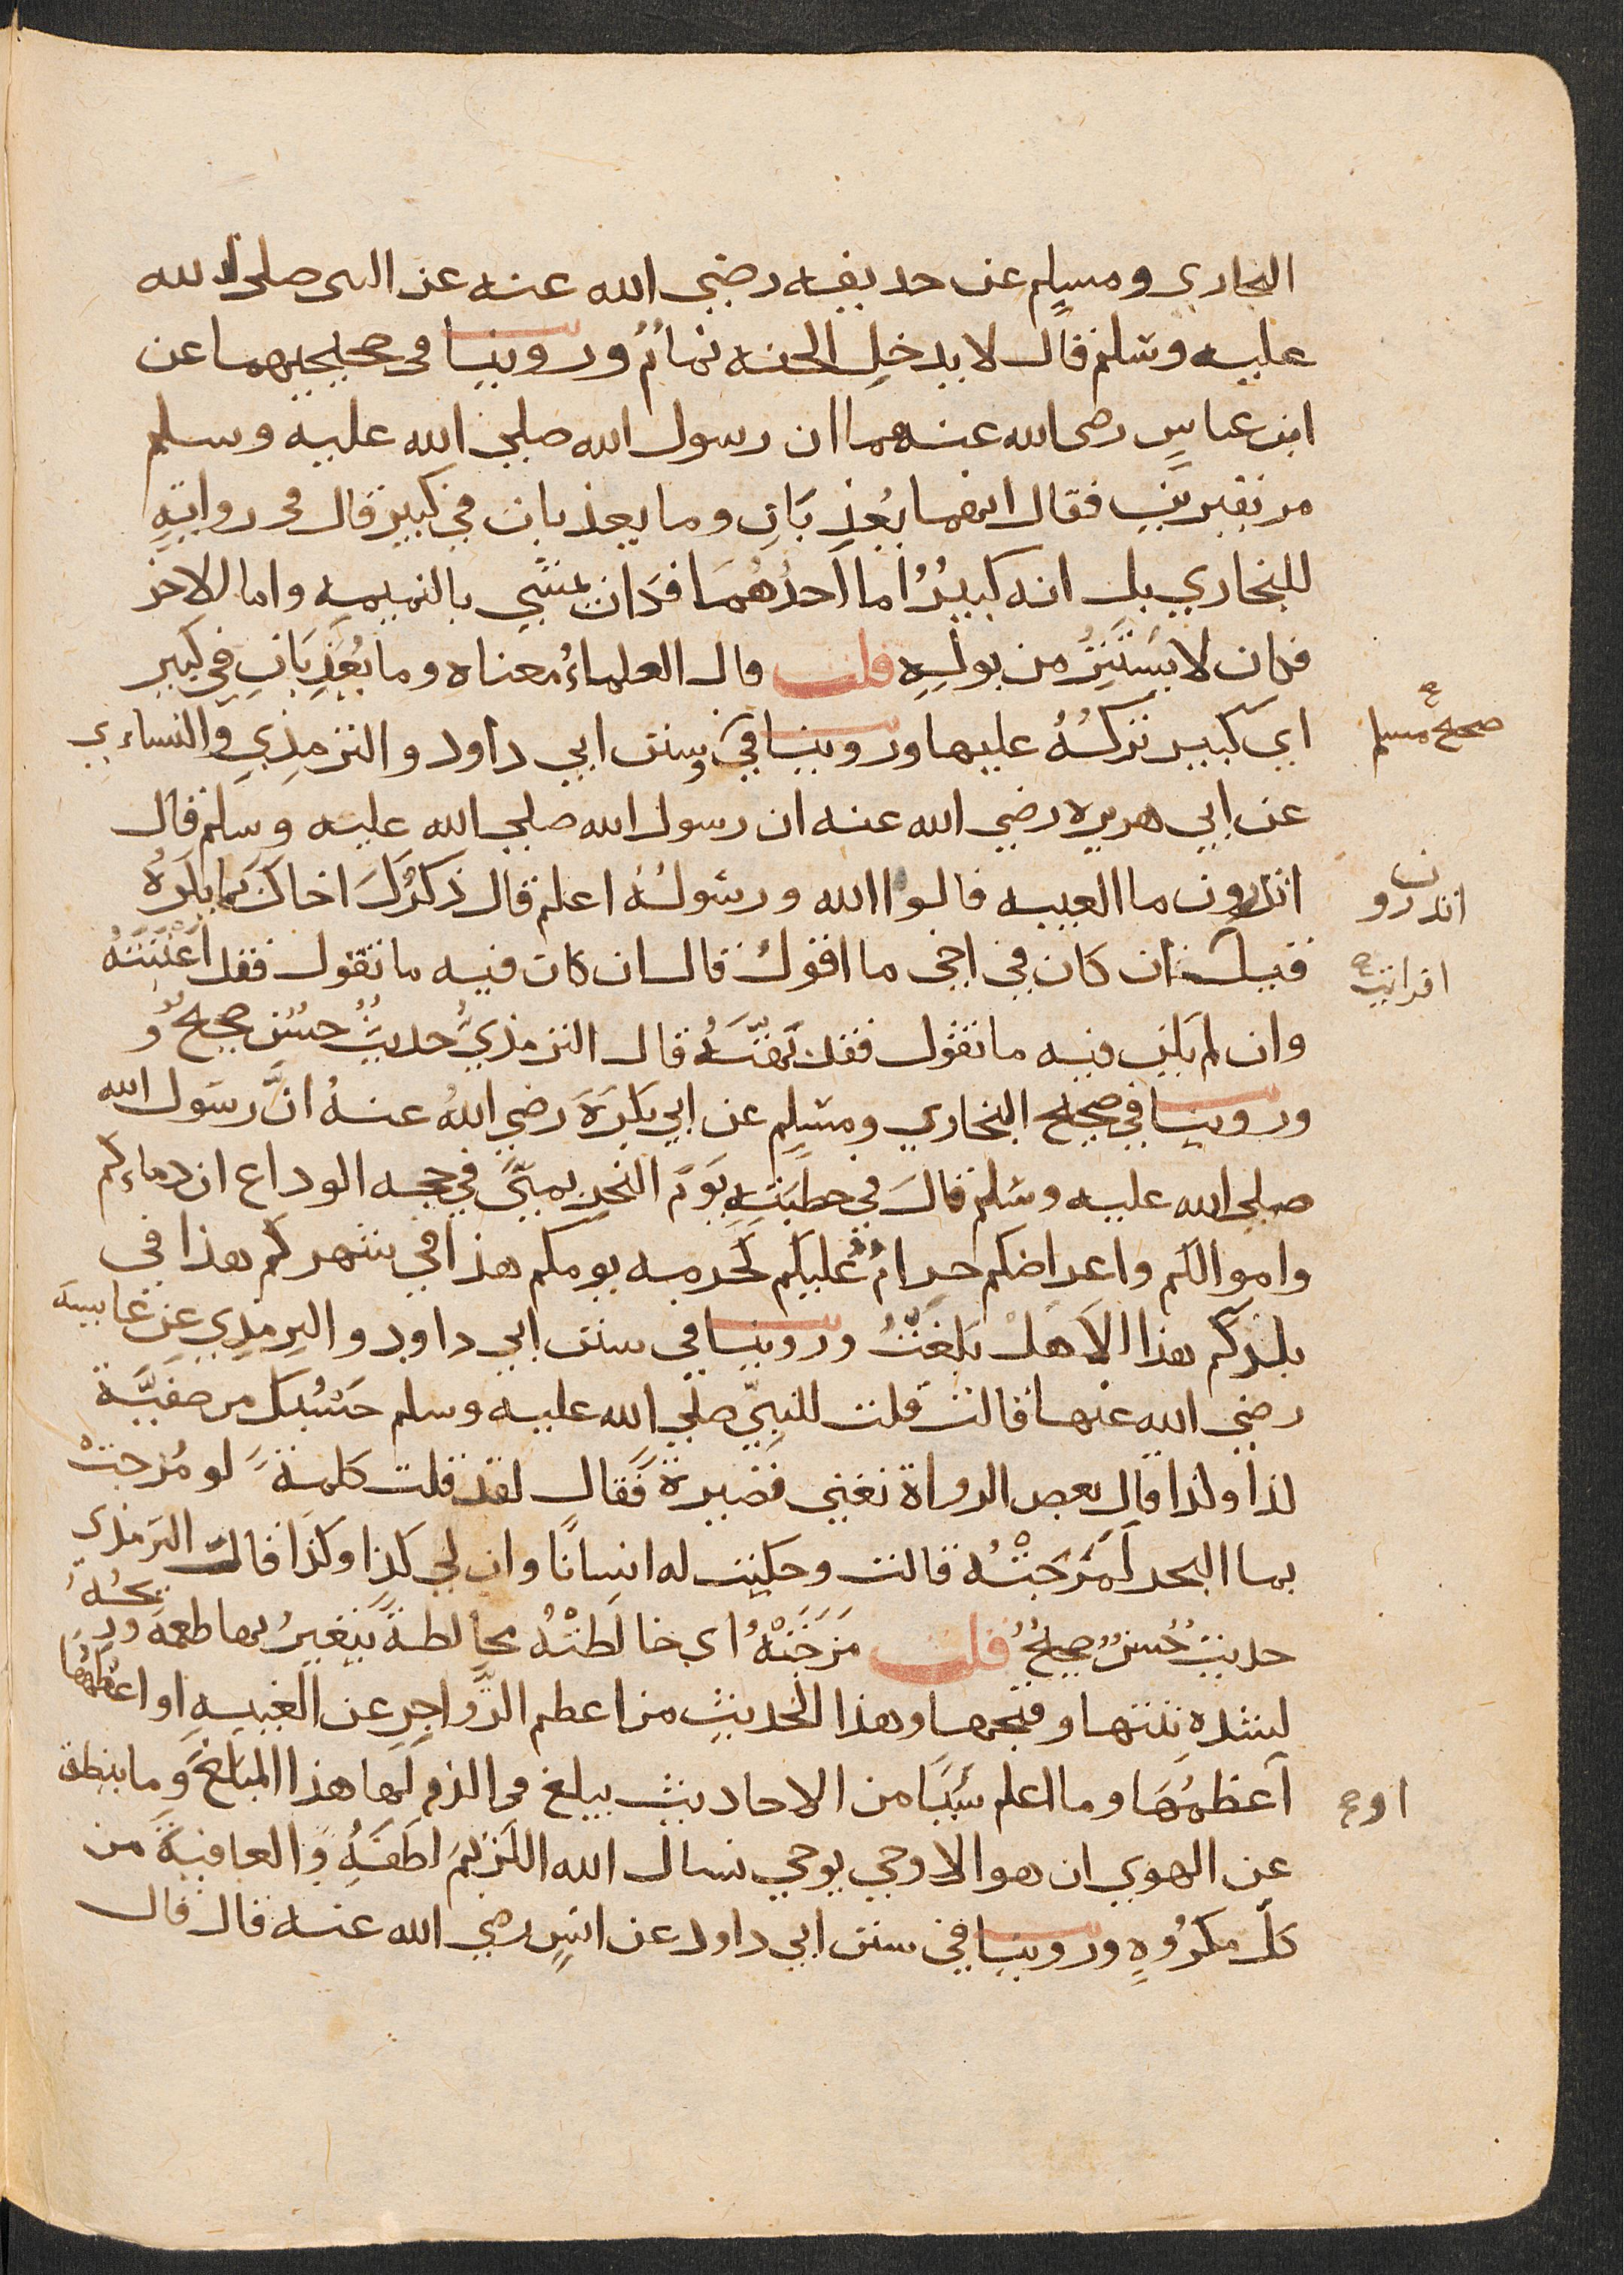 البخاري ومسلم عن حذيفه رضي الله عنه عن النبي صلى الله
عليه وسلم قال لا يدخل الجنه نمامٌ وروينا في صحيحيهما عن
ابن عباسٍ رضي الله عنهما ان رسول الله صلي الله عليه وسلم
مر بقبرينِ فقال انهما يُعذبَانِ وما يعذبان في كبيرٍ قال في روايةٍ
للبخاري بلى انه كبيرٌ اما احدُهُمَا فكان يمشي بالنميمه واما الاخر
فكان لا يستتِرُ من بولِهِ قلت قال العلماءُ معناه وما يُعَذبَانِ في كبيرٍ
اي كبير تركُهُ عليها وروينا في وسنن ابي داود والترمذيِ والنساءي
صحيح مسلم
عن ابي هريره رضي الله عنه ان رسول الله صلي الله عليه وسلم قال
اتدرون ما الغيبه قالوا الله ورسولُهُ اعلم قال ذكرُكَ اخاك بما يكرَهُ
اتدرون
قيل ان كان في اخي ما اقولُ قال ان كان فيه ما تقول فقد اغتَبْتَهُ
افرايت
وان لم يكن فيه ما تقول فقد بَهَتَّهُ قال الترمذيُّ حديثٌ حسنٌ صحيحٌ و
وروينا في صحيح البخاري ومسلم عن ابي بكرَةَ رضي اللهُ عنهُ انَّ رسول الله
صلي الله عليه وسلم قالَ في خطبتِهِ يَوْمَ النحرِ بمنًى في حجه الوداع ان دماءكم
واموالكم واعراضكم حرامٌ عليكم كحرمه يومكم هذا في شهركم هذا في
بلدكم هذا الاَ هلْ بَلغتُ وروينا في سنن ابي داود والترمذي عن عايشه
رضي الله عنها قالت قلت للنبيّ صلي الله عليه وسلم حَسْبُكَ من صفيَّة
كذا وكذا قال بعض الرواة تعني قصيرةً فقال لقد قلت كلمةً لو مُزجتْ
بما البحر لَمَزَجَتْهُ قالت وحكيت له انسانًا وان لي كذا وكذا قال الترمذي
حديثٌ حسنٌ صحيحٌ قلت مَزَجَتْهُ اي خالَطَتْهُ مخالطةً يتغيرُ بها طعمه وريحُهُ
لشدهِ نتنها وقبحها وهذا الحديثِ من اعظم الزواجرِ عن الغيبهِ او اعظمُها
أعظمُهَا وما اعلم شيئًا من الاحاديث يبلغ في الذم لها هذا المبلغَ وما ينطق
او
عن الهوي ان هو الا وحي يوحي نسال الله الكريمَ لطفَهُ والعافيةَ من
كلّ مكرُوهٍ وروينا في سنن ابي داود عن انسٍ رضي الله عنه قال قال